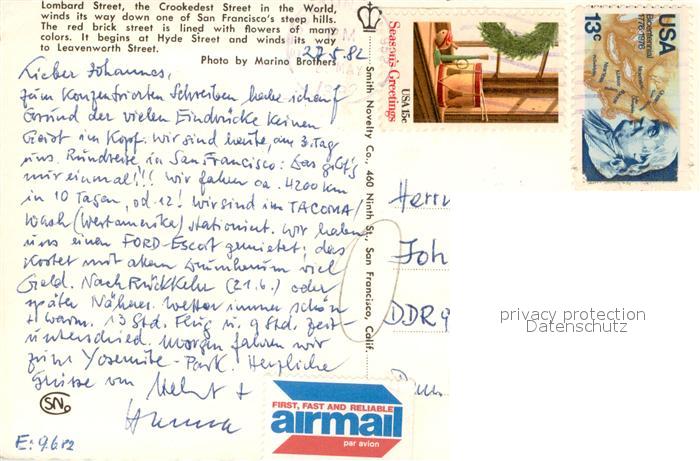 Lombard Street, the Crookedest Street in the World,
winds its way down one of San Francisco's steep hills.
The red brick street is lined with flowers of many
colors. It begins at Hyde Street and winds its way
to Leavenworth Street.
Photo by Marino Brothers
27.5.82
Lieber Johannes,
zum Konzentrierten Schreiben habe ich auf
Grund der vielen Eindrücke keinen
Geist im Kopf. Wir sind heute, am 3. Tag
uns. Rundreise in San Francisco: Das gibt's
nur einmal!!! Wir fahren ca. 4200 km
in 10 Tagen, od. 12! Wir sind im TACOMA/
Wash (Westamerika) stationiert. Wir haben
uns einen FORD-Escort gemietet; das
kostet mit allem Drumherum viel
Geld. Nach Rückkehr (21.6.) oder
später Näheres. Wetter immer schön
+ warm. 13 Std. Flug u. 9 Std. Zeit-
unterschied. Morgen fahren wir
zum Yosemite-Park. Herzliche
Grüsse von Helmut +
Hanna
SN
E: 9.6.82
Smith Novelty Co., 460 Ninth St., San Francisco, Calif.
Season's Greetings
USA 15c
USA
13c
Bicentennial
1776-1976
Herrn
Joh
DDR 9
privacy protection
Datenschutz
FIRST, FAST AND RELIABLE
airmail
par avion